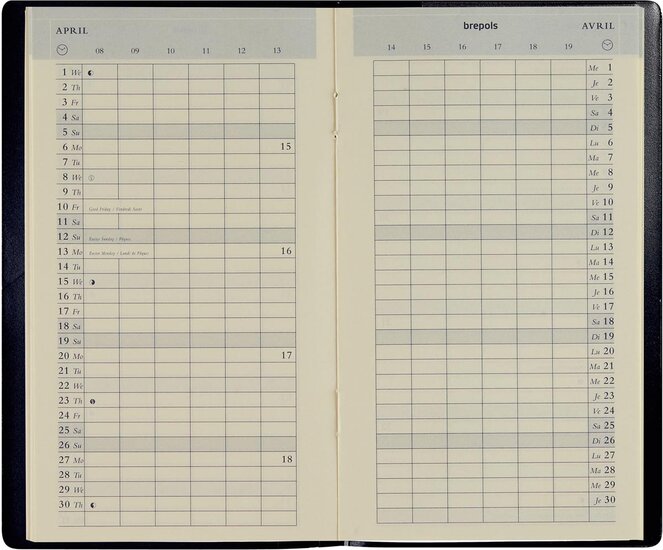 APRIL
08 09 10 11 12 13
1 We
2 Th
3 Fr
4 Sa
5 Su
6 Mo 15
7 Tu
8 We
9 Th
10 Fr Good Friday / Vendredi Saint
11 Sa
12 Su Easter Sunday / Pâques
13 Mo Easter Monday / Lundi de Pâques 16
14 Tu
15 We
16 Th
17 Fr
18 Sa
19 Su
20 Mo 17
21 Tu
22 We
23 Th
24 Fr
25 Sa
26 Su
27 Mo 18
28 Tu
29 We
30 Th
brepols AVRIL
14 15 16 17 18 19
Me 1
Je 2
Ve 3
Sa 4
Di 5
Lu 6
Ma 7
Me 8
Je 9
Ve 10
Sa 11
Di 12
Lu 13
Ma 14
Me 15
Je 16
Ve 17
Sa 18
Di 19
Lu 20
Ma 21
Me 22
Je 23
Ve 24
Sa 25
Di 26
Lu 27
Ma 28
Me 29
Je 30